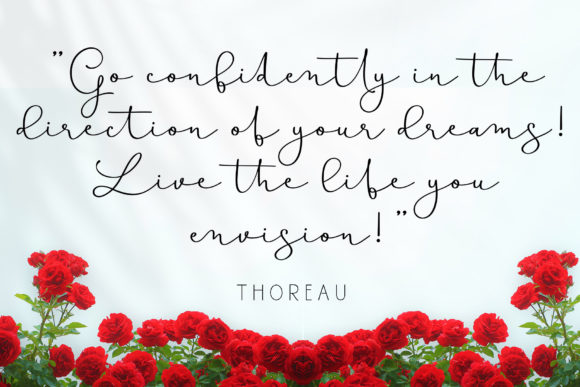 "Go confidently in the
direction of your dreams!
Live the life you
envision!"
THOREAU